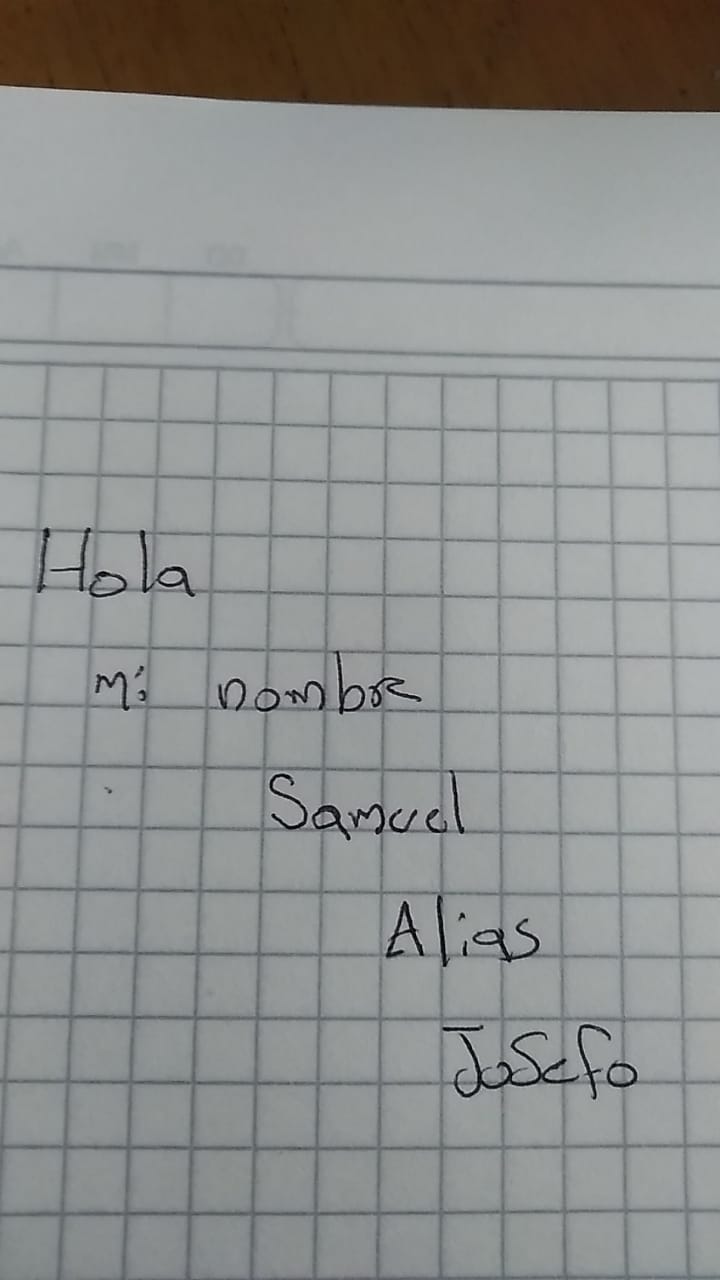 Hola
mi nombre
Samuel
Alias
Josefo